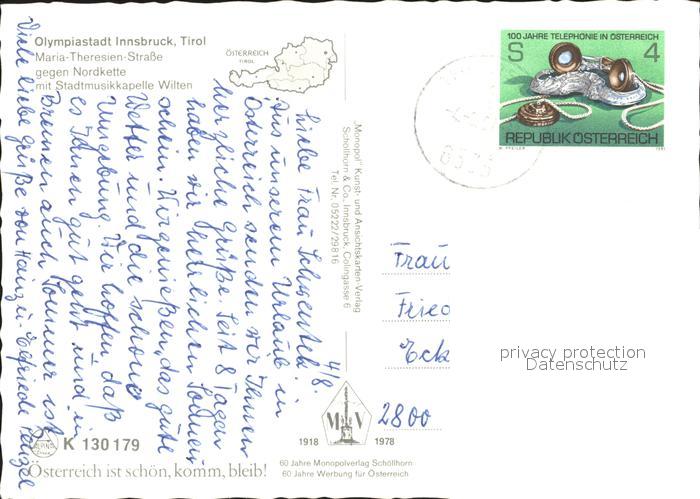 Olympiastadt Innsbruck, Tirol
Maria-Theresien-Straße
gegen Nordkette
mit Stadtmusikkapelle Wilten
ÖSTERREICH
TIROL
100 JAHRE TELEPHONIE IN ÖSTERREICH
S 4
REPUBLIK ÖSTERREICH
"Monopol" Kunst- und Ansichtskarten-Verlag
Schöllhorn & Co., Innsbruck, Colingasse 6
Tel. Nr. 05222/29816
4/8.
Liebe Frau
Aus unserem Urlaub in
Österreich senden wir Ihnen
herzliche Grüße. Seit 8 Tagen
haben wir herrlichen Sonnen-
schein. Wir genießen das gute
Wetter und die schöne
Umgebung. Wir hoffen, daß
es Ihnen gut geht und in
Bremen auch Sommer ist.
Viele liebe Grüße von Hanz u. Elfriede
Frau
Fried
Eck
2800
privacy protection
Datenschutz
M V
1918 1978
K 130 179
Österreich ist schön, komm, bleib!
60 Jahre Monopolverlag Schöllhorn
60 Jahre Werbung für Österreich